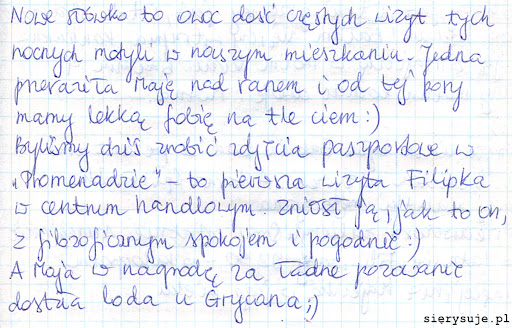 Nowe słówko to owoc dość częstych wizyt tych
nocnych motyli w naszym mieszkaniu. Jedna
przeraziła Maję nad ranem i od tej pory
mamy lekką fobię na tle ciem :)
Byliśmy dziś zrobić zdjęcia paszportowe w
„Promenadzie” – to pierwsza wizyta Filipka
w centrum handlowym. Zniósł ją, jak to on,
z filozoficznym spokojem i pogodnie :)
A Maja w nagrodę za ładne pozowanie
dostała loda u Grycana ;)
sierysuje.pl